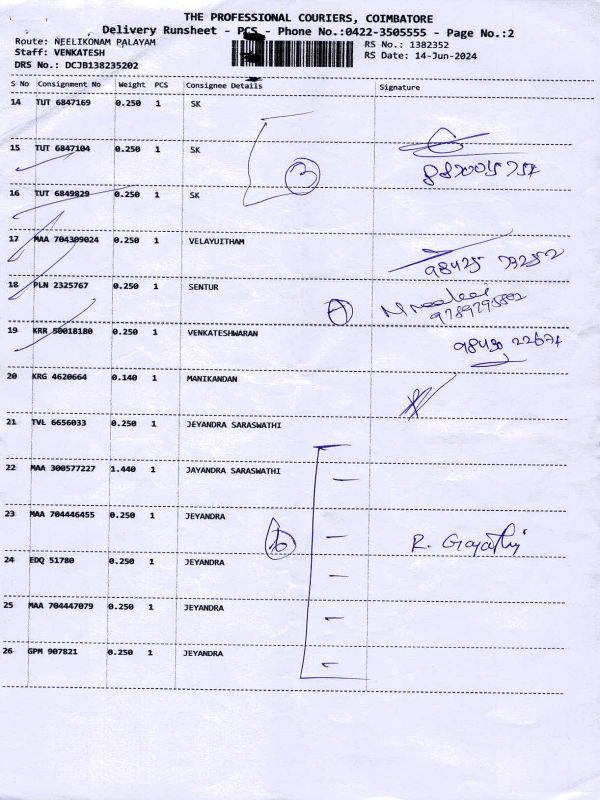 THE PROFESSIONAL COURIERS, COIMBATORE
Delivery Runsheet - PCS - Phone No.:0422-3505555 - Page No.:2
Route: NEELIKONAM PALAYAM
Staff: VENKATESH
DRS No.: DCJB138235202
RS No.: 1382352
RS Date: 14-Jun-2024
S No Consignment No Weight PCS Consignee Details Signature
14 TUT 6847169 0.250 1 SK
15 TUT 6847104 0.250 1 SK
3
16 TUT 6849829 0.250 1 SK
17 MAA 704309024 0.250 1 VELAYUITHAM
18 PLN 2325767 0.250 1 SENTUR
9789795502
19 KRR 50018180 0.250 1 VENKATESHWARAN
20 KRG 4620664 0.140 1 MANIKANDAN
21 TVL 6656033 0.250 1 JEYANDRA SARASWATHI
22 MAA 300577227 1.440 1 JAYANDRA SARASWATHI
23 MAA 704446455 0.250 1 JEYANDRA
R. Gayathi
24 EDQ 51780 0.250 1 JEYANDRA
25 MAA 704447079 0.250 1 JEYANDRA
26 GPM 907821 0.250 1 JEYANDRA